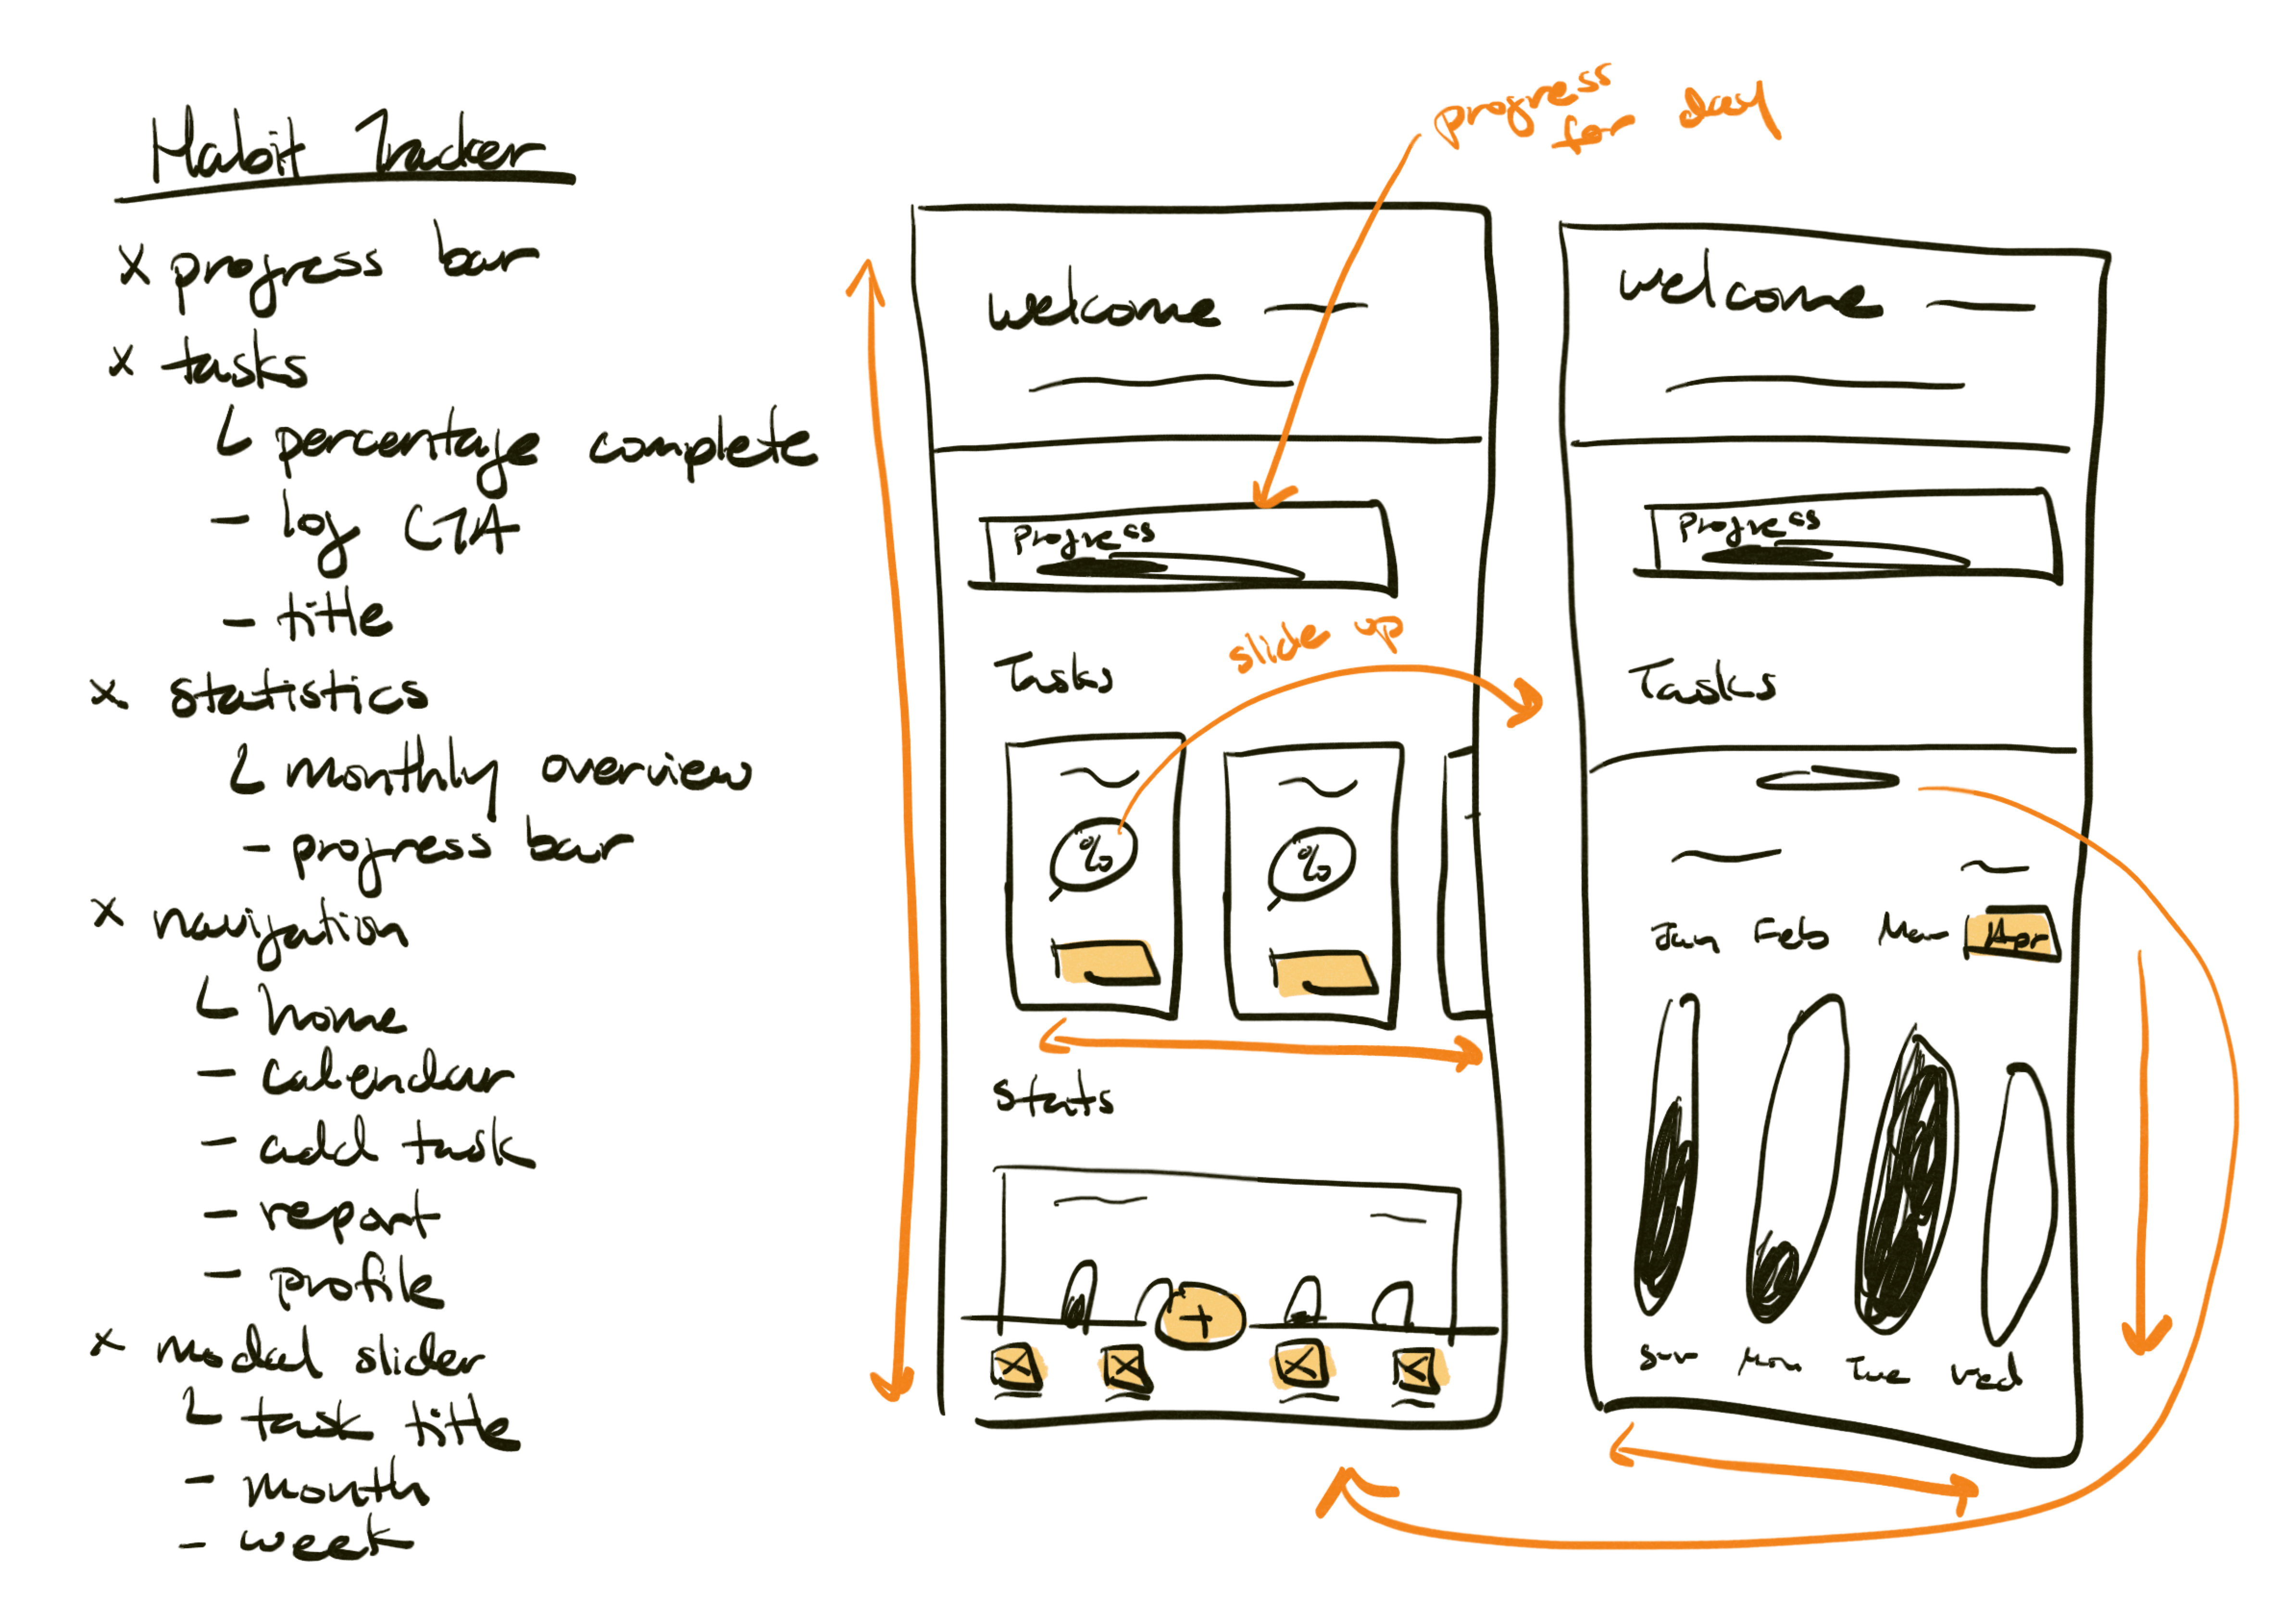 Habit Tracker
x progress bar
x tasks
└ percentage complete
- log CTA
- title
x statistics
└ monthly overview
- progress bar
x navigation
└ home
- calendar
- add task
- report
- profile
x modal slider
└ task title
- month
- week
progress
for day
welcome
Progress
slide up
Tasks
% %
Stats
+
welcome
Progress
Tasks
Jan Feb Mar Apr
Sun Mon Tue Wed